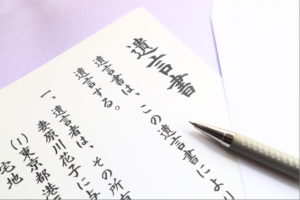 遺言書
遺言書は、この遺言書により
遺言する。
一、遺言者は、その所
長原川花子に与
(1)東京都港
宅地